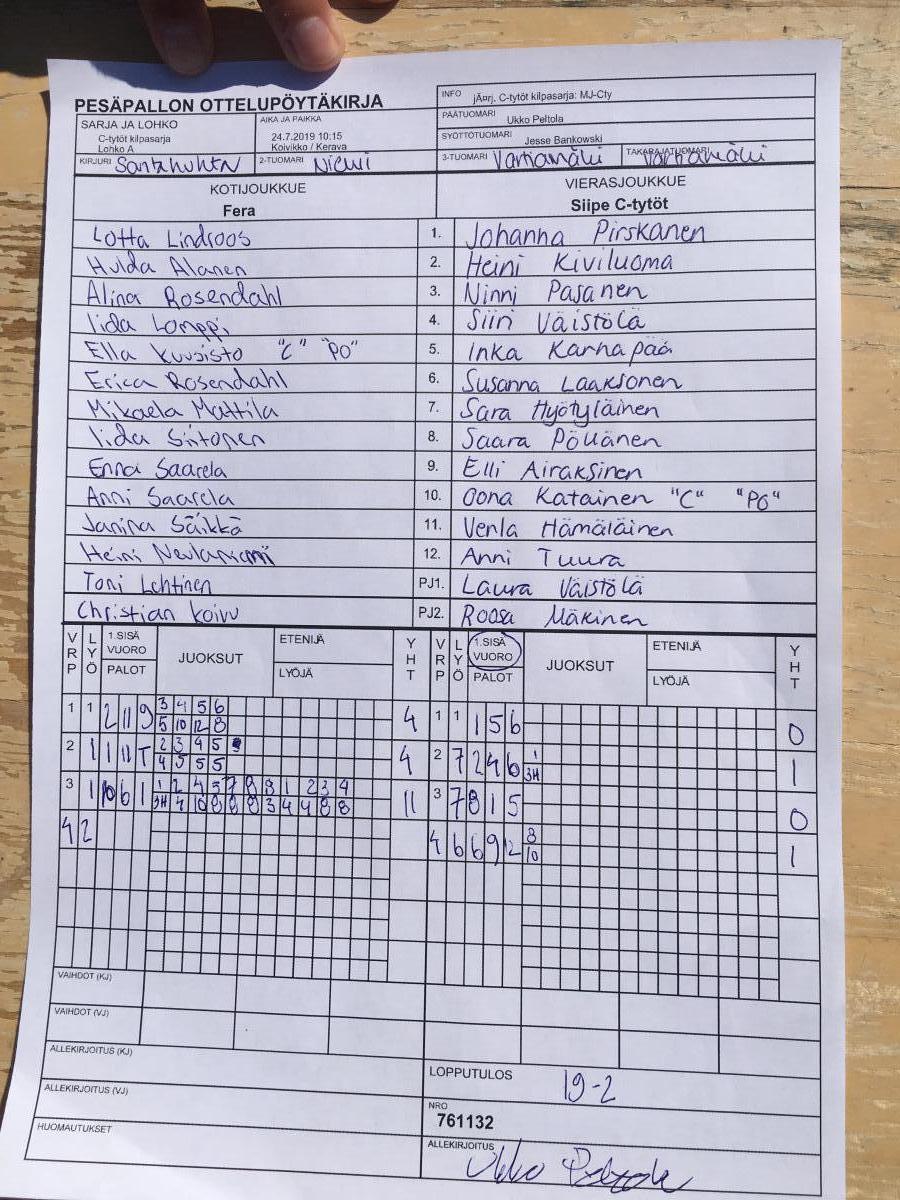 PESÄPALLON OTTELUPÖYTÄKIRJA
INFO jÃ¤rj. C-tytöt kilpasarja: MJ-Cty
PÄÄTUOMARI Ukko Peltola
SARJA JA LOHKO
C-tytöt kilpasarja
Lohko A
AIKA JA PAIKKA
24.7.2019 10:15
Koivikko / Kerava
SYÖTTÖTUOMARI Jesse Bankowski
KIRJURI Santahuhta 2-TUOMARI Niemi 3-TUOMARI Vartiamäki TAKARAJATUOMARI Vartiamäki
KOTIJOUKKUE VIERASJOUKKUE
Fera Siipe C-tytöt
Lotta Lindroos 1. Johanna Pirskanen
Hulda Alanen 2. Heini Kiviluoma
Alina Rosendahl 3. Ninni Pasanen
Iida Lomppi 4. Siiri Väistölä
Ella Kuusisto "C" "PO" 5. Inka Karhapää
Erica Rosendahl 6. Susanna Laaksonen
Mikaela Mattila 7. Sara Hyötyläinen
Iida Siitonen 8. Saara Pöllänen
Enna Saarela 9. Elli Airaksinen
Anni Saarela 10. Oona Katainen "C" "PO"
Janina Säikkä 11. Venla Hämäläinen
Heini Neulaniemi 12. Anni Tuura
Toni Lehtinen PJ1. Laura Väistölä
Christian Koivu PJ2. Roosa Mäkinen
VRP LYÖ 1.SISÄ VUORO PALOT JUOKSUT ETENIJÄ LYÖJÄ YHT VRP LYÖ 1.SISÄ VUORO PALOT JUOKSUT ETENIJÄ LYÖJÄ YHT
1 1 2 11 9 3 4 5 6 4 1 1 1 5 6 0
5 10 12 8
2 1 1 11 T 2 3 4 5 4 2 7 2 4 6 1 1
4 5 5 5 3H
3 1 10 6 1 1 2 4 5 7 8 9 1 2 3 4 11 3 7 8 1 5 0
3H 4 10 8 8 8 3 4 4 8 8
4 2 4 6 6 9 12 8 1
10
VAIHDOT (KJ)
VAIHDOT (VJ)
ALLEKIRJOITUS (KJ)
LOPPUTULOS 19-2
ALLEKIRJOITUS (VJ)
NRO
761132
HUOMAUTUKSET
ALLEKIRJOITUS Ukko Peltola